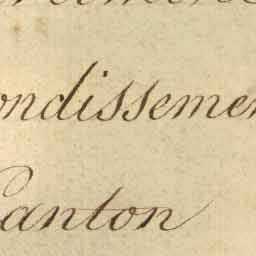 ondissemen
Canton